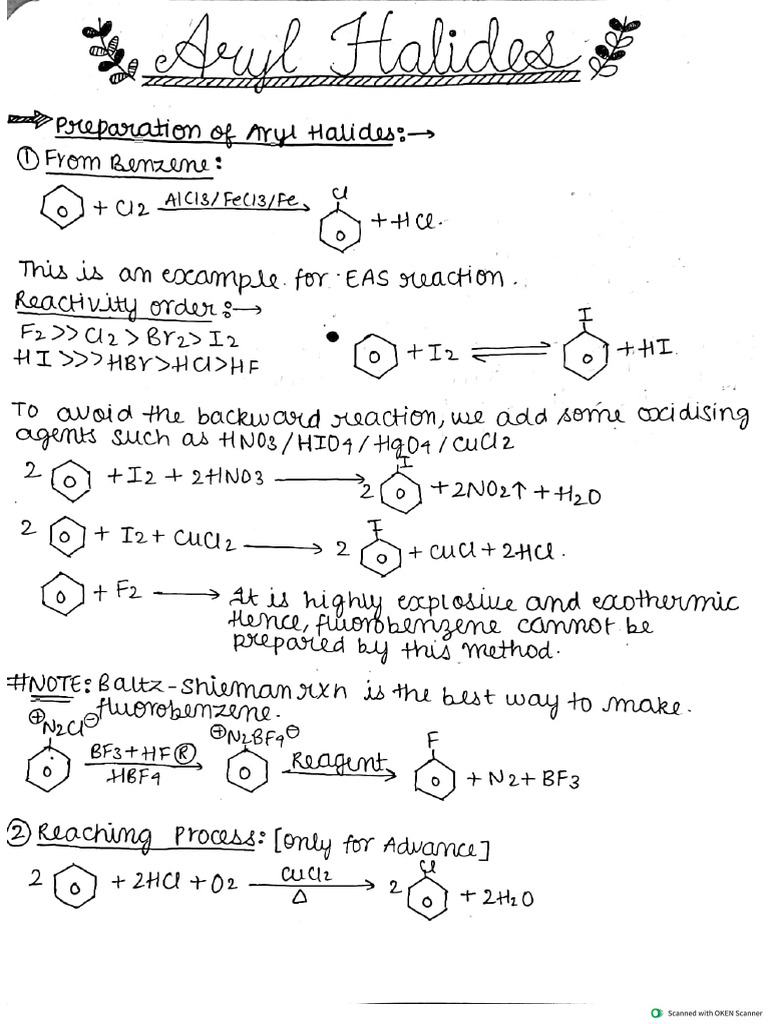 Aryl Halides
Preparation of Aryl Halides:→
① From Benzene:
+ Cl2 AlCl3/FeCl3/Fe → Cl + HCl.
This is an example for EAS reaction.
Reactivity order:→
F2 >> Cl2 > Br2 > I2
HI >>> HBr > HCl > HF
• + I2 ⇌ I + HI.
To avoid the backward reaction, we add some oxidising
agents such as HNO3/HIO4/HgO4/CuCl2
2 + I2 + 2HNO3 → 2 I + 2NO2↑ + H2O
2 + I2 + CuCl2 → 2 I + CuCl + 2HCl.
+ F2 → It is highly explosive and exothermic
Hence, fluorobenzene cannot be
prepared by this method.
#NOTE: Baltz-Shieman rxn is the best way to make
fluorobenzene.
⊕N2Cl⊖ BF3 + HF Ⓡ HBF4 → ⊕N2BF4⊖ Reagent → F + N2 + BF3
② Reaching Process: [Only for Advance]
2 + 2HCl + O2 CuCl2 Δ → 2 Cl + 2H2O
Scanned with OKEN Scanner